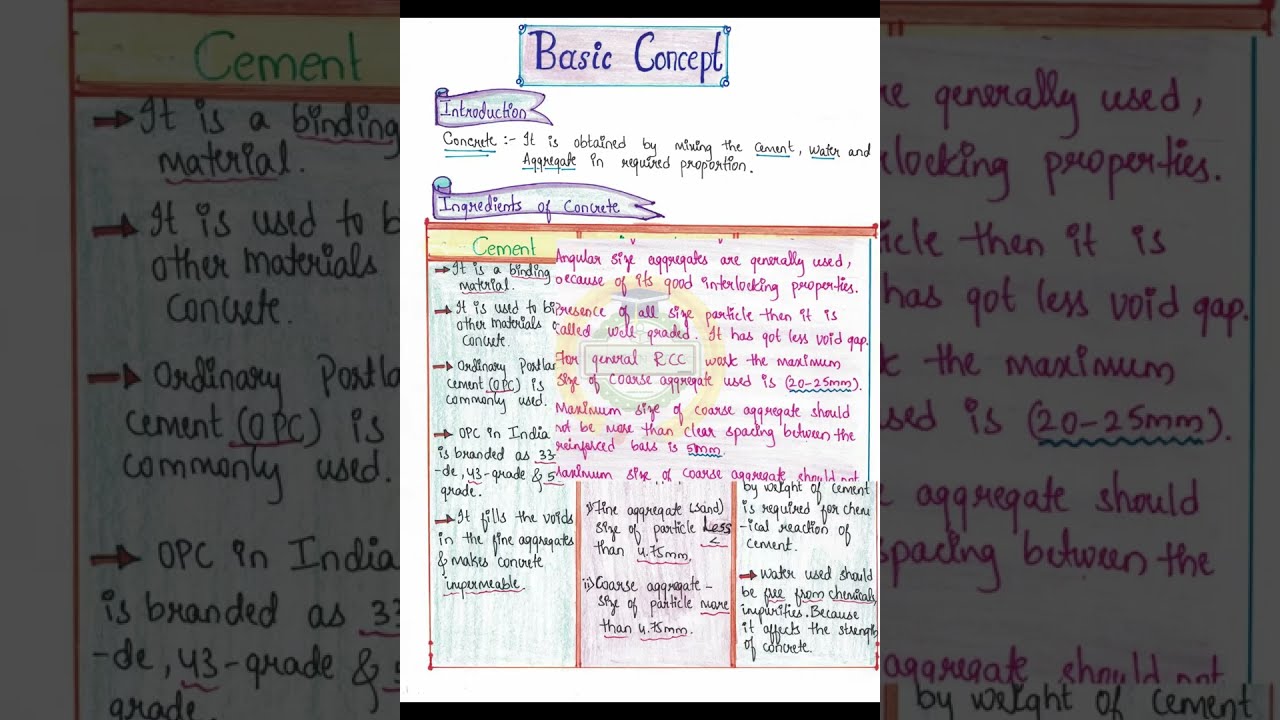 Basic Concept
Introduction
Concrete :- It is obtained by mixing the cement, water and
Aggregate in required proportion.
Ingredients of Concrete
Cement
It is a binding
material.
It is used to bi
other materials
concrete.
Ordinary Portla
cement (OPC) is
commonly used.
OPC in India
is branded as 33
-de, 43-grade & 5
grade.
It fills the voids
in the fine aggregates
& makes concrete
impermeable.
Angular size aggregates are generally used,
because of its good interlocking properties.
presence of all size particle then it is
called well graded. It has got less void gap.
For general RCC work the maximum
size of coarse aggregate used is (20-25mm).
Maximum size of coarse aggregate should
not be more than clear spacing between the
reinforced bars is 5mm.
Maximum size of coarse aggregate should not
i) Fine aggregate (sand)
size of particle Less
<
than 4.75mm.
ii) Coarse aggregate -
size of particle more
than 4.75mm.
by weight of cement
is required for chem
-ical reaction of
cement.
water used should
be free from chemicals,
impurities. Because
it affects the strength
of concrete.
Cement
It is a binding
material.
It is used to b
other materials
concrete.
Ordinary Portla
cement (OPC) is
commonly used.
OPC in India
is branded as 33
-de, 43-grade &
grade.
re generally used,
rlocking properties.
icle then it is
has got less void gap.
k the maximum
sed is (20-25mm).
e aggregate should
spacing between the
aggregate should not
by weight of cement